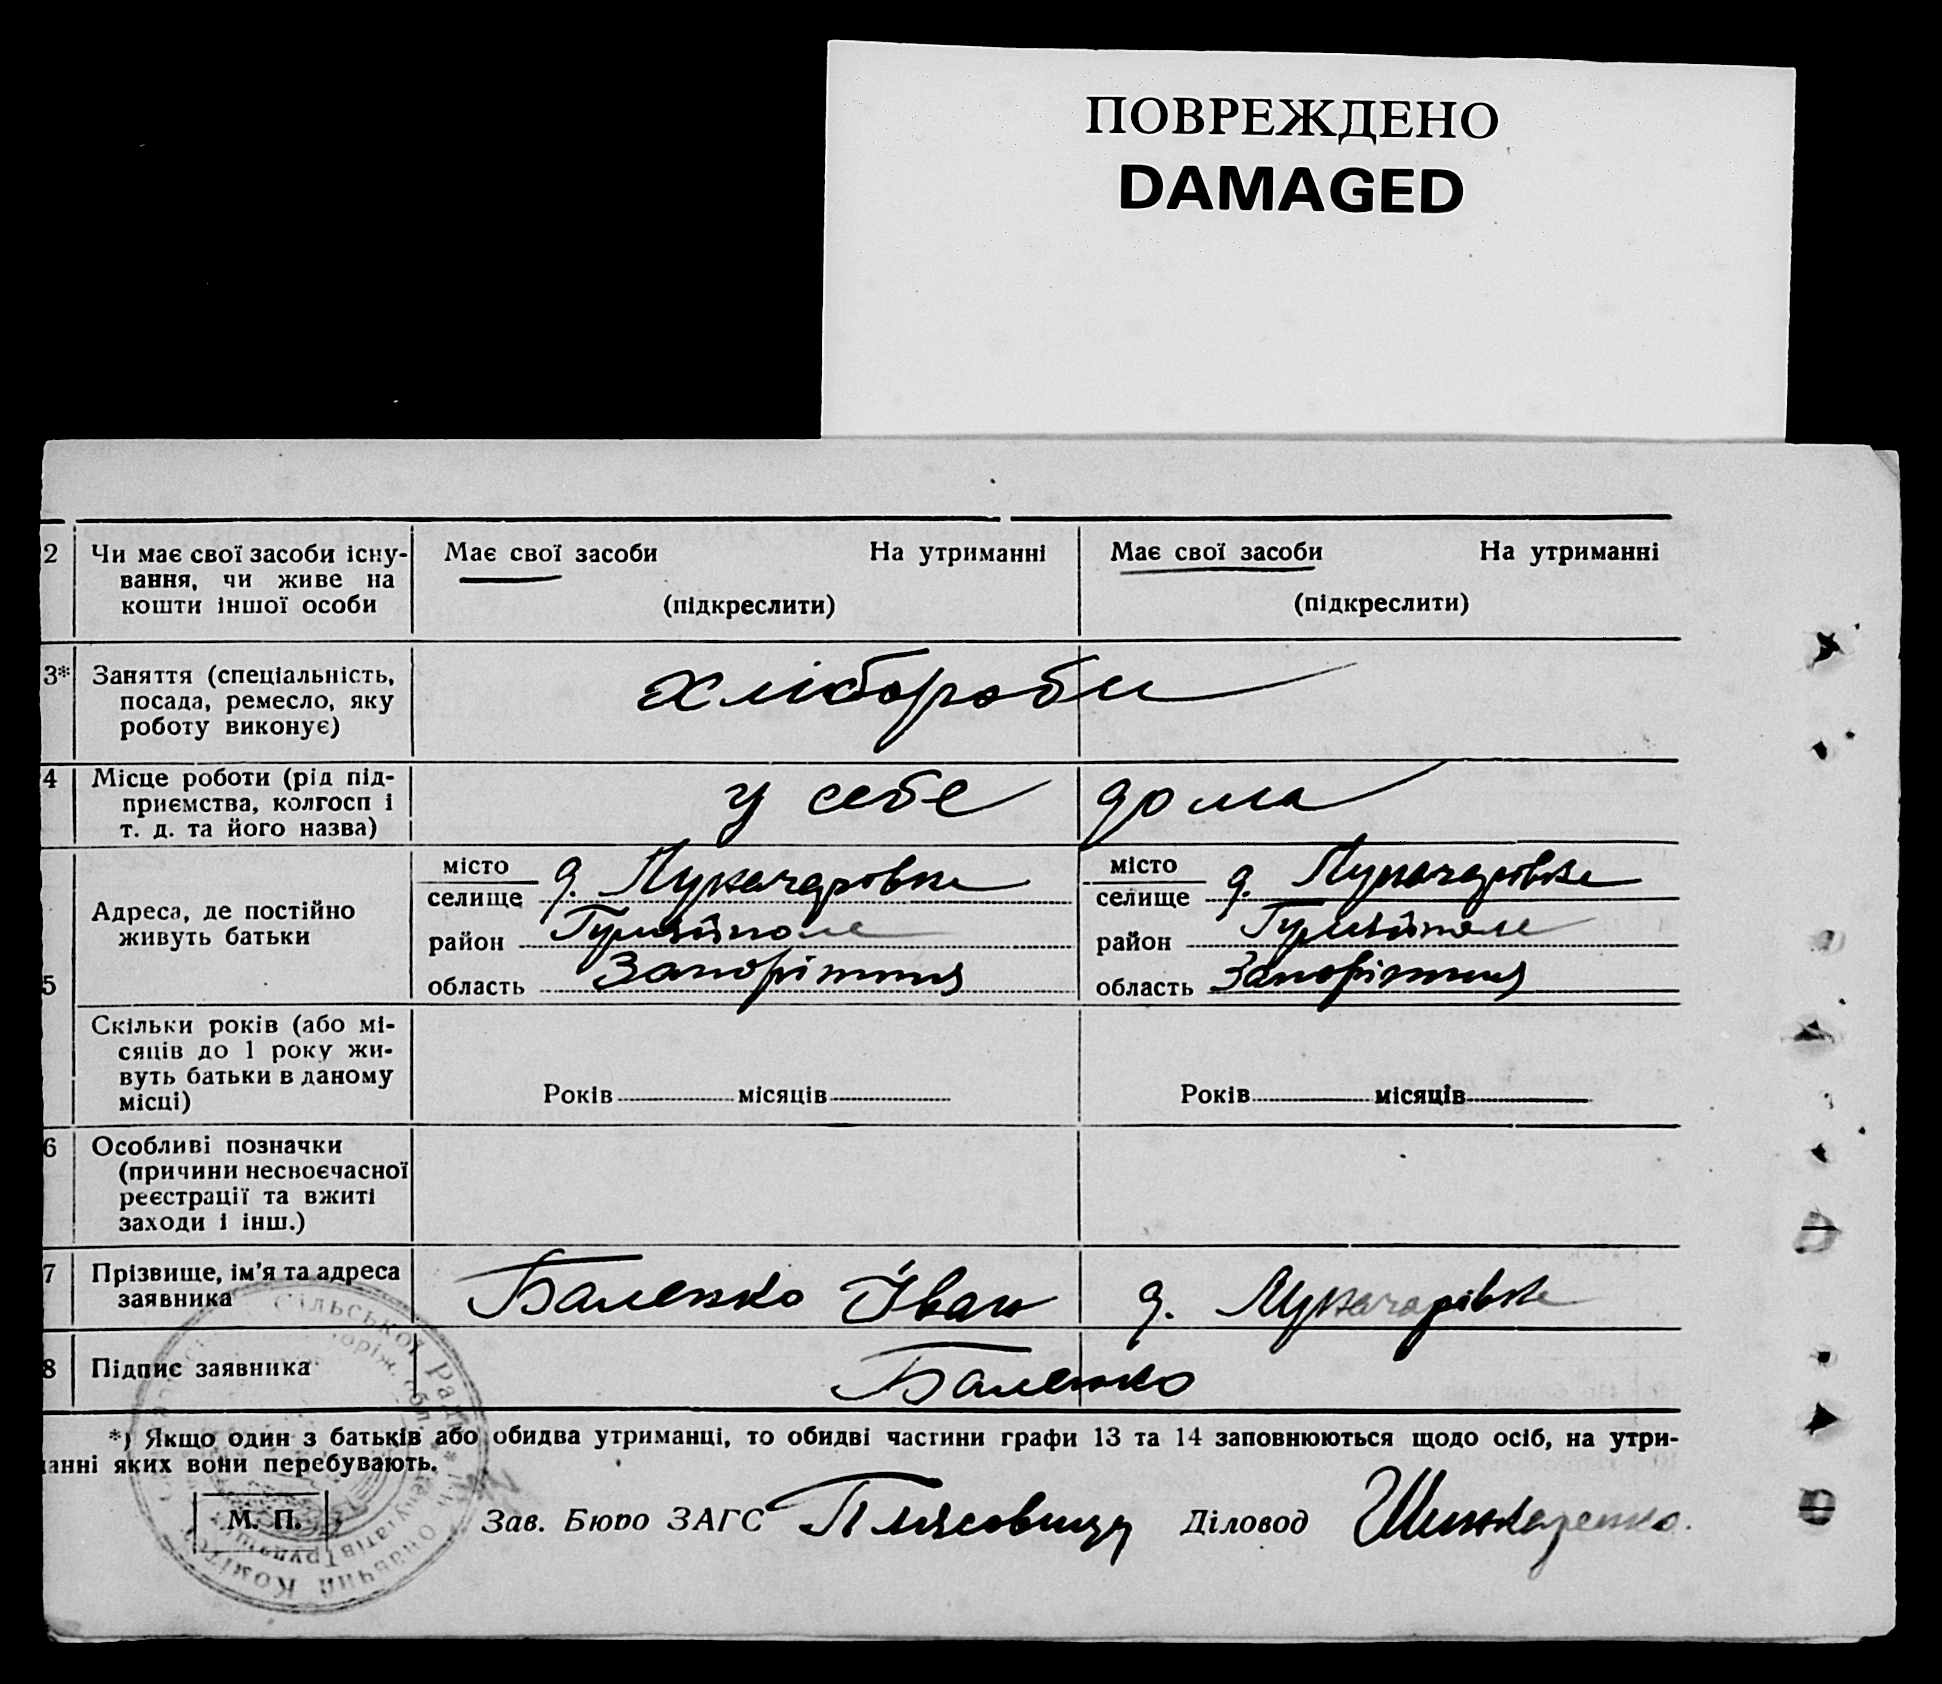 ПОВРЕЖДЕНО
DAMAGED
2 Чи має свої засоби існу-
вання, чи живе на
кошти іншої особи
Має свої засоби На утриманні
(підкреслити)
Має свої засоби На утриманні
(підкреслити)
3* Заняття (спеціальність,
посада, ремесло, яку
роботу виконує)
хлібороби
4 Місце роботи (рід під-
приємства, колгосп і
т. д. та його назва)
у себе дома
5 Адреса, де постійно
живуть батьки
місто
селище д.
район Гуляйполе
область Запоріжжя
місто
селище д.
район Гуляйполе
область Запоріжжя
Скільки років (або мі-
сяців до 1 року жи-
вуть батьки в даному
місці)
Років місяців
Років місяців
6 Особливі позначки
(причини несвоєчасної
реєстрації та вжиті
заходи і інш.)
7 Прізвище, ім'я та адреса
заявника
Баленко Іван д.
8 Підпис заявника
Баленко
*) Якщо один з батьків або обидва утриманці, то обидві частини графи 13 та 14 заповнюються щодо осіб, на утри-
анні яких вони перебувають.
М. П.
Зав. Бюро ЗАГС Діловод Шинкаренко.
Сільської Ради